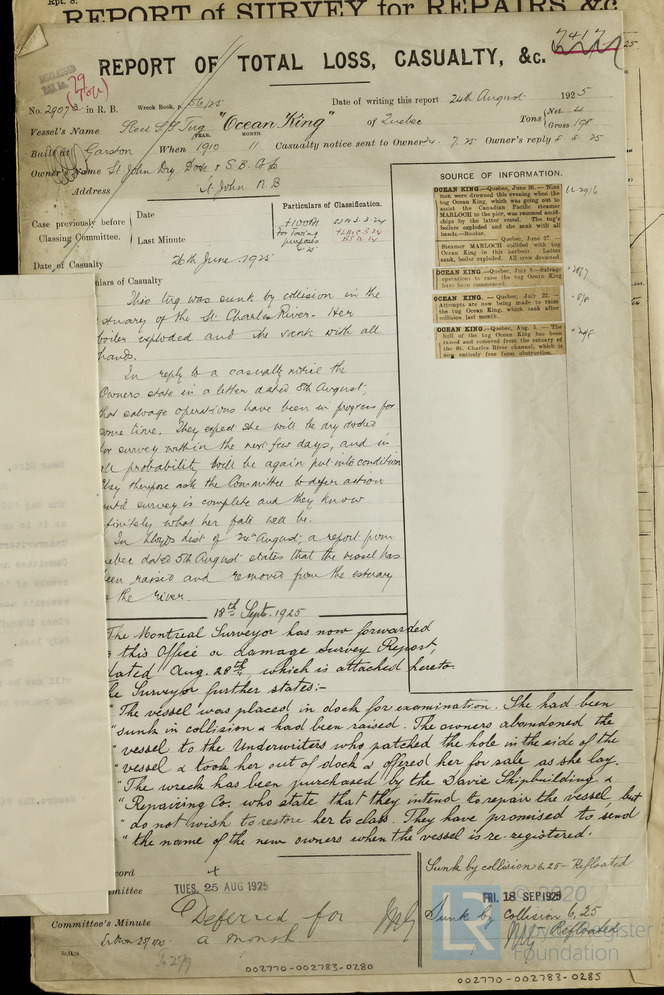 Rpt. 8.
REPORT of SURVEY for REPAIRS, &c
7417
REPORT OF TOTAL LOSS, CASUALTY, &c.
No. 29072 in R. B.
Wreck Book, p. 56/25
Date of writing this report 24th August 1925
Vessel's Name Steel S.S. Tug "Ocean King" of Quebec
Tons Net 4
Gross 198
YEAR. MONTH.
Built at Garston When 1910 11 Casualty notice sent to Owner 7.25 Owner's reply 8 8 25
Owner's Name St. John Dry Dock & S.B. Co Ld
Address St. John. N.B
SOURCE OF INFORMATION.
Case previously before Classing Committee.
Date
Last Minute
Particulars of Classification.
+100A1
for towing purposes
Date of Casualty 26th June, 1925
OCEAN KING.—Quebec, June 26.—Nine men were drowned this evening when the tug Ocean King, which was going out to assist the Canadian Pacific steamer MARLOCH to the pier, was rammed amidships by the latter vessel. The tug's boilers exploded and she sank with all hands.—Reuter.
—Quebec, June 27.—Steamer MARLOCH collided with tug Ocean King in this harbour. Latter sank, boiler exploded. All crew drowned.
OCEAN KING.—Quebec, July 8.—Salvage operations to raise the tug Ocean King have been commenced.
OCEAN KING.—Quebec, July 22.—Attempts are now being made to raise the tug Ocean King, which sank after collision last month.
OCEAN KING.—Quebec, Aug. 5.—The hull of the tug Ocean King has been raised and removed from the estuary of the St. Charles River channel, which is now entirely free from obstruction.
ulars of Casualty
This tug was sunk by collision in the
stuary of the St. Charles River. Her
boiler exploded and she sank with all
hands.
In reply to a casualty notice the
Owners state in a letter dated 8th August,
that salvage operations have been in progress for
some time. They expect she will be dry docked
for survey within the next few days, and in
all probability will be again put into condition
They therefore ask the Committee to defer action
until survey is complete and they know
finitely what her fate will be.
In Lloyds list of August, a report from
uebec dated 5th August states that the vessel has
been raised and removed from the estuary
the river.
18th Sept. 1925
The Montreal Surveyor has now forwarded
this Office a Damage Survey Report,
dated Aug. 28th, which is attached hereto.
he Surveyor further states:-
"The vessel was placed in dock for examination. She had been
"sunk in collision & had been raised. The owners abandoned the
"vessel to the Underwriters who patched the hole in the side of the
"vessel & took her out of dock & offered her for sale as she lay.
"The wreck has been purchased by the Davie Shipbuilding &
"Repairing Co. who state that they intend to repair the vessel, but
"do not wish to restore her to class. They have promised to send
"the name of the new owners when the vessel is re-registered.
cord
mmittee
TUES. 25 AUG 1925
Sunk by collision 6.25 - Refloated
FRI. 18 SEP 1925
Committee's Minute
Deferred for
a month
Sunk by collision 6.25
Refloated
002770-002783-0280
002770-002783-0285
© 2020
LR
Lloyd's Register
Foundation